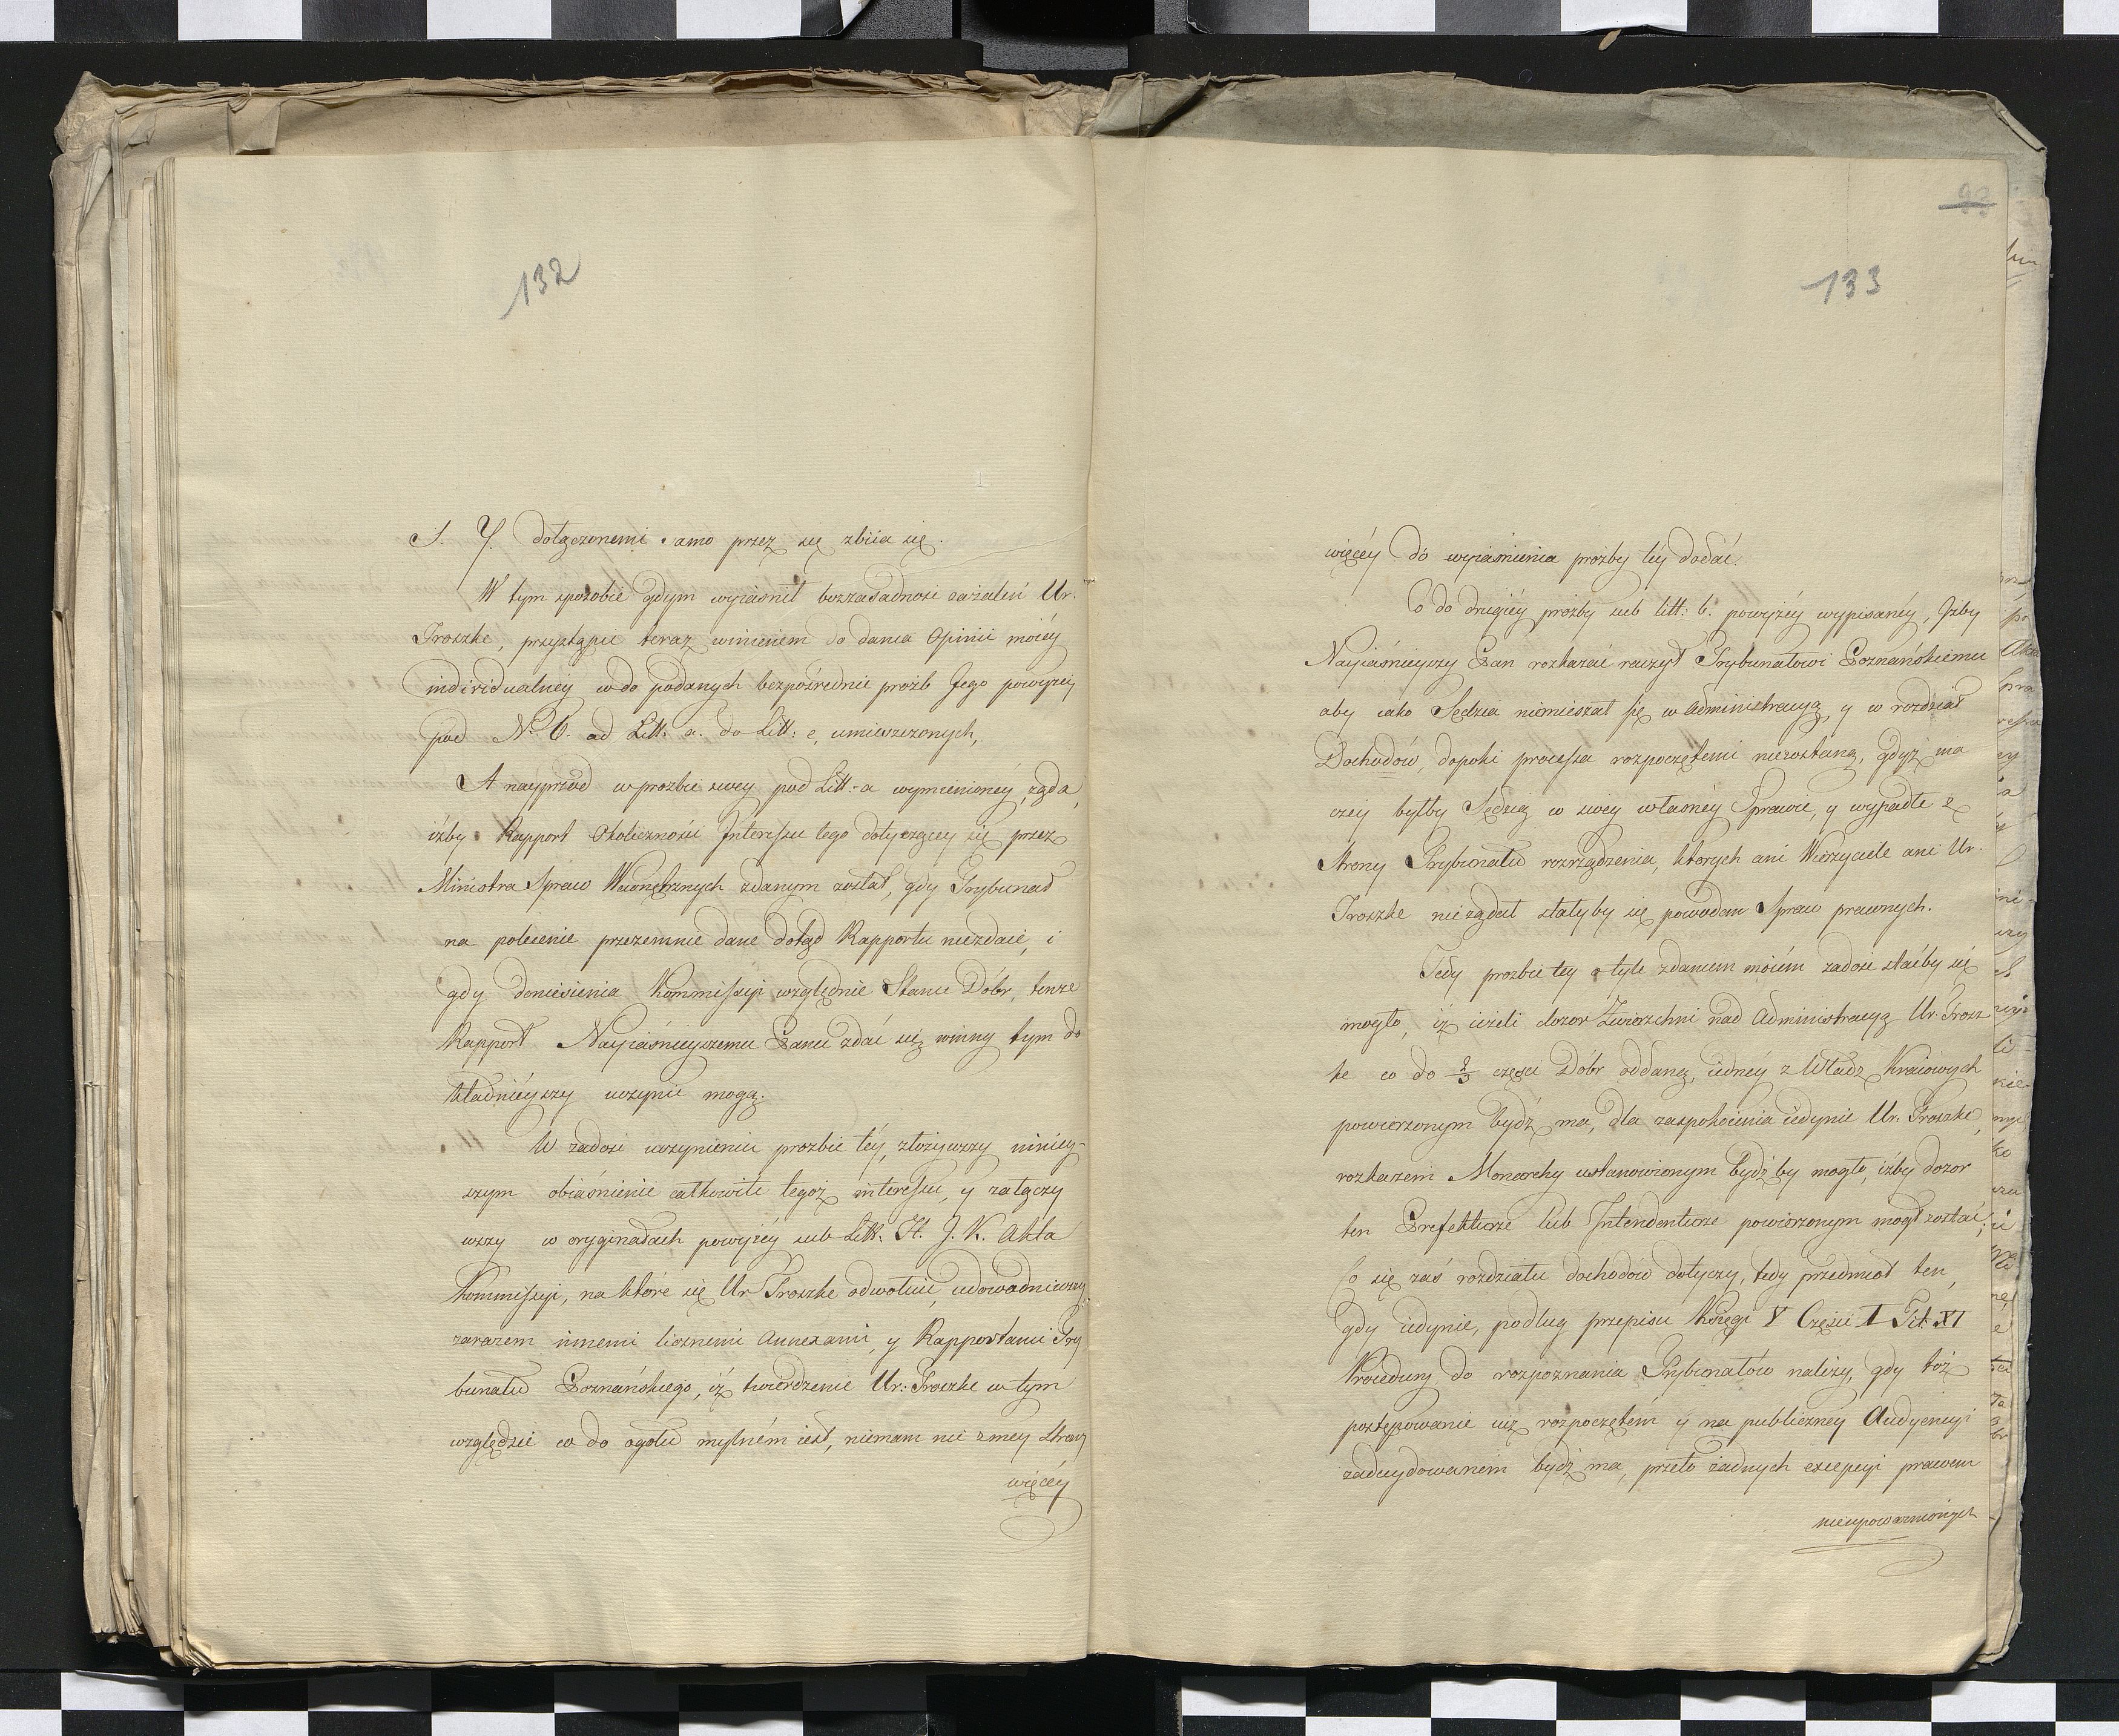 132
S. Y. dołączonemi samo przez się zbiia się.
W tym sposobie gdym wyiasnił bezzasadnosc zażaleń Ur.
Troszke, przystąpic teraz winienem do dania Opinii moiéy
individualnéy co do podanych bezpośrednie prozb Jego powyzey
pod N. 6. ad Litt. a. do Litt: e, umieszczonych,
A nayprzód w prozbie swey pod Litt: a wymienionéy, żąda,
iżby Rapport Okoliczności Interessu tego dotyczącey się przez
Ministra Spraw Wewnętrznych zdanym został, gdy Trybunał
na polecenie przezemnie dane dotąd Rapportu niezdaie, i
gdy doniesienia Kommissyi względnie Stanu Dóbr, tenze
Rapport Nayiaśnieyszemu Panu zdać się winny tym do
kładniéyszy uczynic mogą.
W zadosc uczynieniu prozbie téy, złożywszy niniey-
szym obiaśnienie całkowite tegoż interessu, y załączy
wszy w oryginałach powyżéy sub Litt. H. J. K. Akta
Kommissyi, na które się Ur Troszke odwołuie, udowadniwszy
zarazem innemi licznemi Annexami, y Rapportami Try
bunału Poznańskiego, iż twierdzenie Ur: Troszke w tym
względzie co do ogołu mylném iest, niemam nic z mey Strony
więcéy
133
więcéy do wyiaśnienia prożby téy dodać.
Co do drugiéy prożby sub litt: b. powyżéy wypisanéy, Jzby
Nayiaśnieyszy Pan rozkazać raczył Trybunałowi Poznańskiemu
aby iako Sędzia niemieszał się w Administracyą, y w rozdział
Dochodów, dopoki processa rozpoczętemi niezostaną, gdyż ina
czey byłby Sędzią w swey własnéy Sprawie, y wypadłe z
Strony Trybunału rozrządzenia, ktorych ani Wierzyciele ani Ur.
Troszke nieżądał stałyby się powodem Spraw prawnych.
Tedy prozbie tey o tyle zdaniem moiém zadosc staćby się
mogło, iż ieżeli dozor Zwierzchni nad Administracyą Ur. Trosz
ke co do 2/3 części Dóbr oddaną, iednéy z Władz Kraiowych
powierzonym bydź ma, dla zaspokoienia iedynie Ur. Troszke,
rozkazem Monarchy ustanowionym bydź by mogło, iżby dozor
ten Prefekturze lub Intendenturze powierzonym mogł zostać;
Co się zaś rozdziału dochodów dotyczy, tedy przedmiot ten,
gdy iedynie, podług przepisu Księgi V Części I Tit. XI
Procedury do rozpoznania Trybunałów należy, gdy toż
postępowanie iuż rozpoczętém y na publicznéy Audyencyi
zadecydowanem bydź ma, przeto żadnych excepcyi prawem
nieupoważnionych